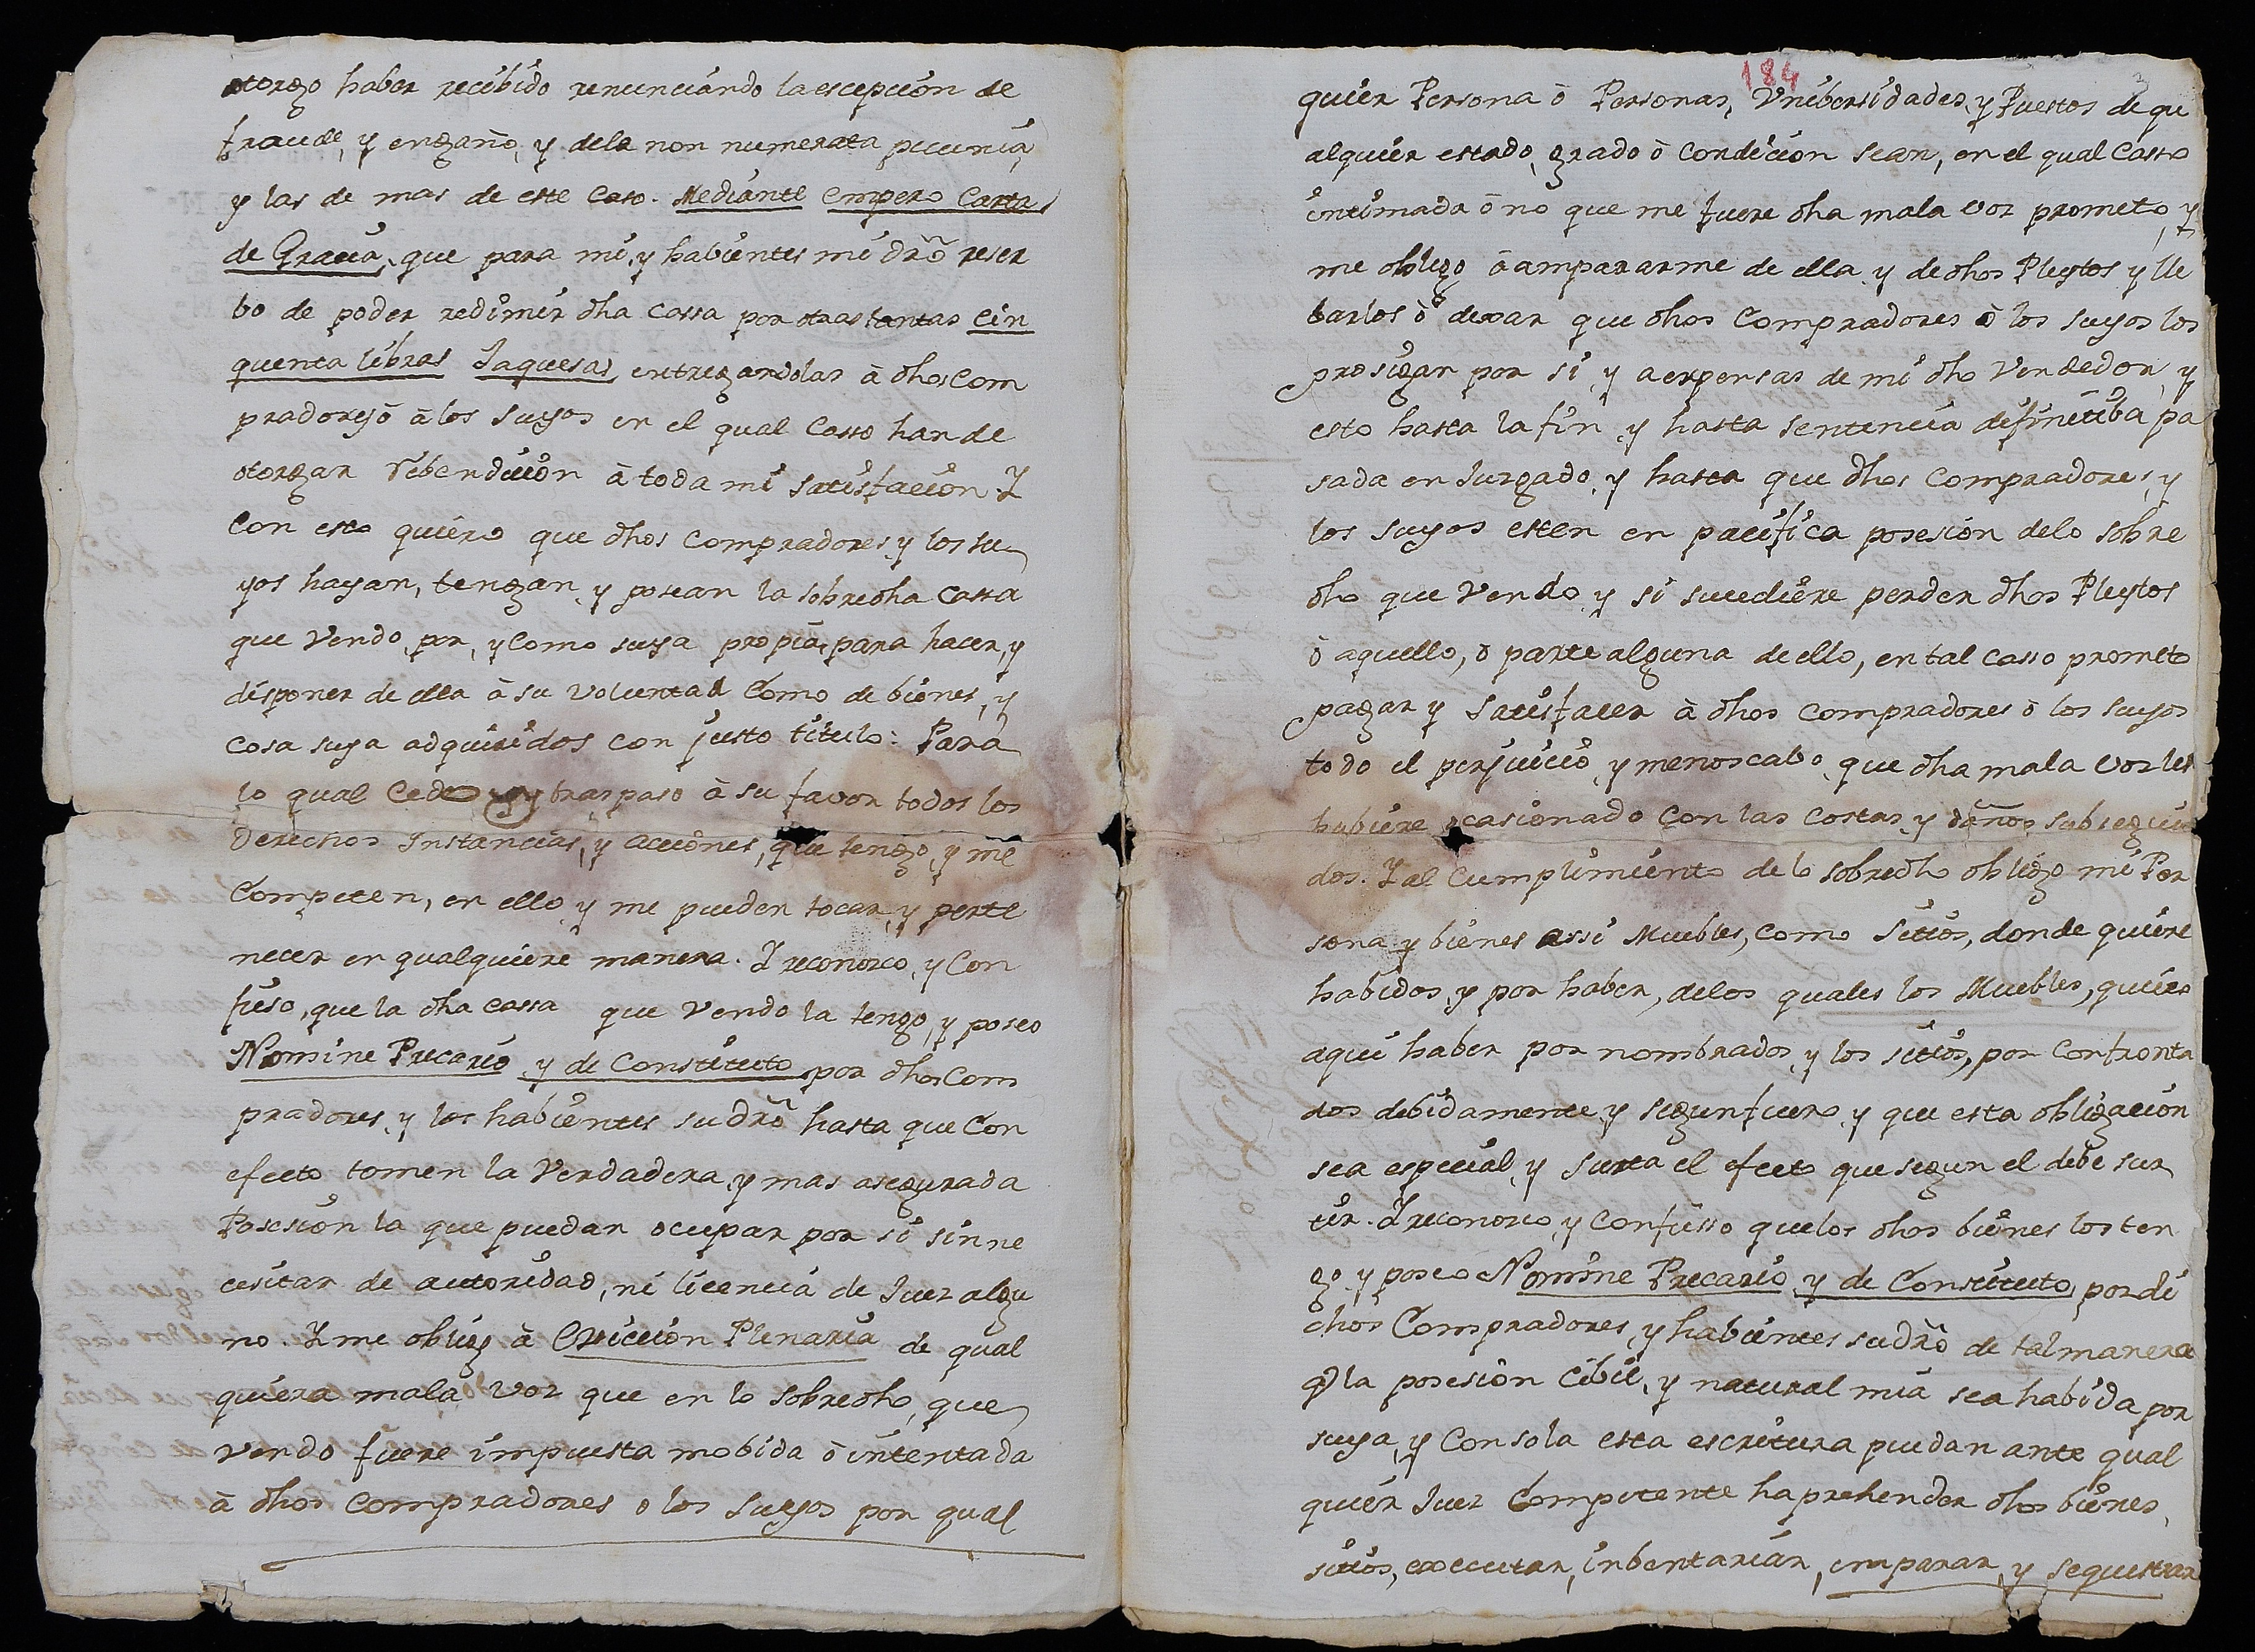 otorgo haber recibido renunciando la escepcion de
fraude, y engaño, y dela non numerata pecunia,
y las de mas de este Caso. Mediante empero Carta
de Gracia, que para mi, y habientes mi dro reser
bo de poder redimir dha cassa por otras tantas cin
quenta libras Jaquesas, entregandolas à dhos Com
pradores ò à los suyos en el qual Casso han de
otorgar rebendicion à toda mi satisfacion. Y
con esto quiero que dhos Compradores, y los su
yos hayan, tengan, y posean la sobredha Cassa
que Vendo, por, y Como suya propia, para hacer, y
disponer de ella à su voluntad Como de bienes, y
cosa suya adquiridos con justo titulo: Para
lo qual Cedo y traspaso à su favor todos los
Derechos Instancias, y acciones, que tengo, y me
Competen, en ello, y me pueden tocar, y perte
necer en qualquiere manera. Y reconosco, y Con
fieso, que la dha cassa que Vendo la tengo, y poseo
Nomine Precario y de Constituto por dhos Com
pradores, y los habientes su dro hasta que Con
efecto tomen la Verdadera, y mas asegurada
Posesion la que puedan ocupar por si sin ne
cesitar de autoridad, ni licencia de Juez algu
no. Y me obligo à Eviccion Plenaria de qual
quiera mala voz que en lo sobredho, que
vendo fuere impuesta mobida ò intentada
à dhos Compradores o los suyos por qual
184
3
quier Persona ò Personas, Vnibersidades, y Puestos de qu
alquier estado, grado ò Condicion sean, en el qual Casso
intimada ò no que me fuere dha mala voz prometo, y
me obligo à ampararme de ella y de dhos Pleytos y lle
barlos ò dexar que dhos Compradores ò los suyos los
prosigan por si y a expensas de mi dho Vendedor, y
esto hasta la fin, y hasta sentencia difinitiba pa
sada en Juzgado, y hasta que dhos Compradores, y
los suyos esten en pacifica posesion delo sobre
dho que Vendo, y si sucediere perder dhos Pleytos
ò aquello, ò parte alguna de ello, en tal casso prometo
pagar y satisfacer à dhos Compradores ò los suyos
todo el perjuicio, y menoscabo, que dha mala voz les
hubiere ocasionado Con las Costas, y daños subsegui
dos. Y al Cumplimiento de lo sobredho obligo mi Per
sona, y bienes assi Muebles, como Sitios, donde quiere
habidos, y por haber, delos quales los Muebles, quiero
aqui haber por nombrados, y los sitios, por Confronta
dos debidamente, y segun fuero, y que esta obligacion
sea especial, y surta el efecto que segun el debe sur
tir. Y reconosco, y Confiesso que los dhos bienes los ten
go, y poseo Nomine Precario, y de Constituto, por di
chos Compradores, y habientes su dro de tal manera
q la posesion Cibil, y natural mia sea habida por
suya, y Con sola esta escritura puedan ante qual
quier Juez Competente haprehender dhos bienes,
sitios, executar, inbentariar, emparar, y sequestrar